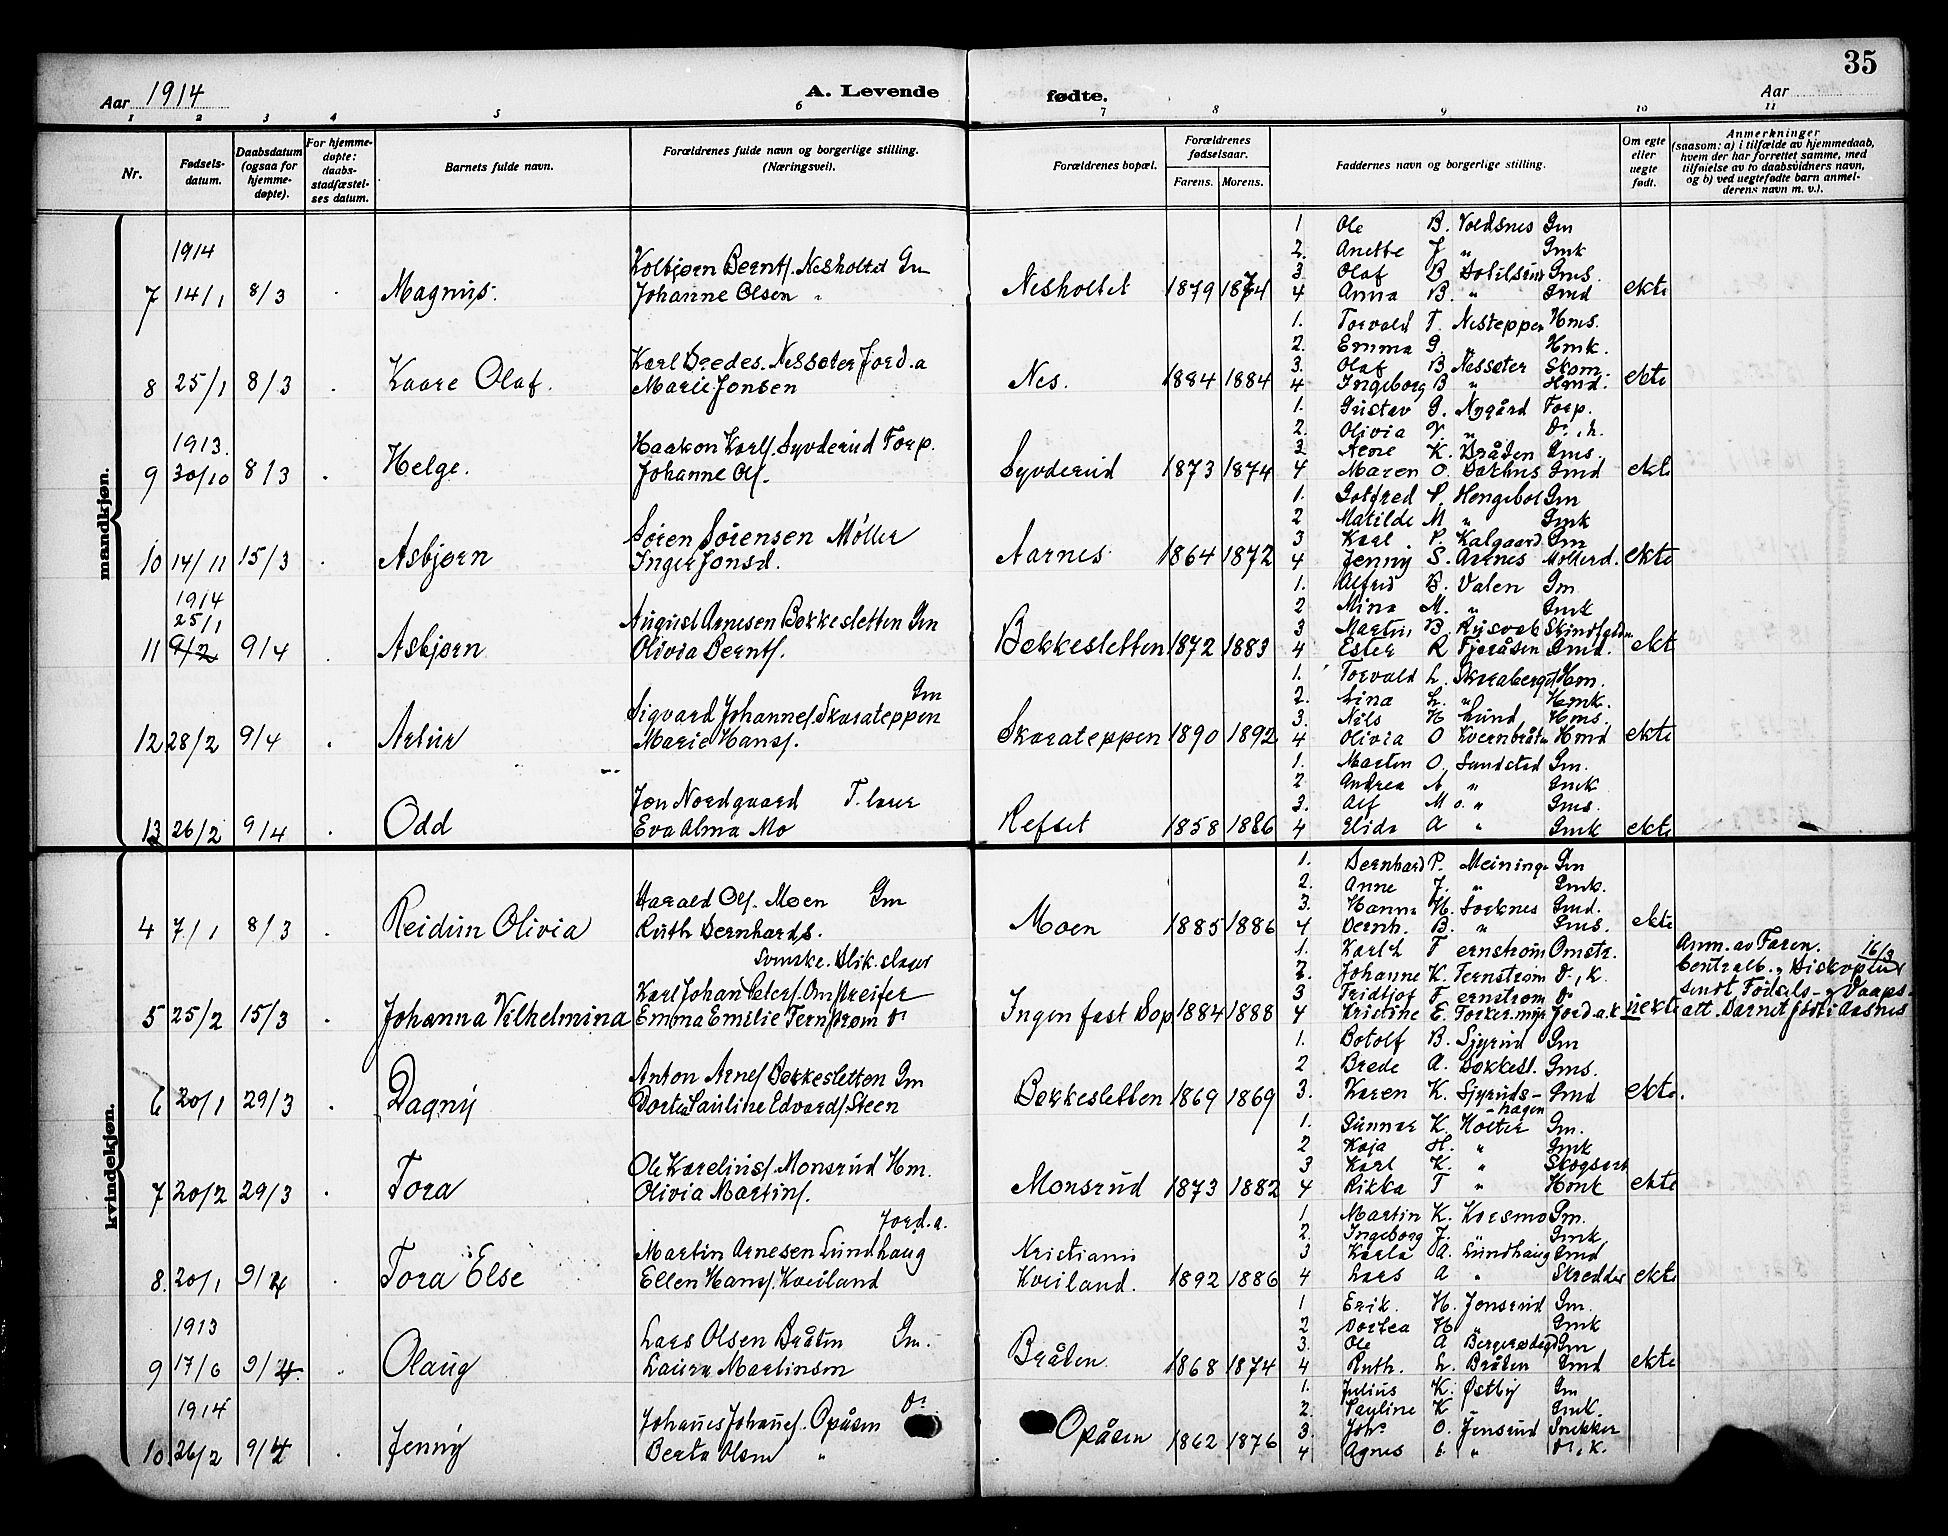 35
Aar 1914
A. Levende fødte.
Aar
1 2 3 4 5 6 7 8 9 10 11
Nr.
Fødsels-datum.
Daabsdatum (ogsaa for hjemme-døpte).
For hjemme-døpte: daabs-stadfæstel-ses datum.
Barnets fulde navn.
Forældrenes fulde navn og borgerlige stilling. (Næringsvei).
Forældrenes bopæl.
Forældrenes fødselsaar.
Farens. Morens.
Faddernes navn og borgerlige stilling.
Om egte eller uegte født.
Anmerkninger (saasom: a) i tilfælde av hjemmedaab, hvem der har forrettet samme, med tilføielse av to daabsvidners navn, og b) ved uegtefødte barn anmel-derens navn m. v.).
mandkjøn.
1914
7 14/1 8/3 Magnus.
Kolbjørn Berntf. Nesholtet Gm
Johanne Olsen "
Nesholtet 1879 1874 ekte
1 Ole B. Voldsnes Gm
2. Anette J " Gmk
3 Olaf B Gms.
4 Anna B. " Gmd
8 25/1 8/3 Kaare Olaf.
Karl Bredes. Nessæter Jord.a
Marie Jonsen
Nes. 1884 1884 ekte
1. Torvald T. Nesteppen Hms.
2. Emma G. " Hmk.
3. Olaf B Nessæter Skom.
4 Ingeborg B " Hmd.
1913.
9 30/10 8/3 Helge.
Haakon Karlf. Syverud Forp.
Johanne Olf.
Syverud 1873 1874 ekte
1. Gustav G. Nygård Forp.
2. Olivia V. " Do., k.
3 K. Bråten Gms.
4 Maren O. Gmd
10 14/11 15/3 Asbjørn
Søren Sørensen Møller
Inger Jonsd.
Aarnes 1864 1872 ekte
1. Gotfred P. Gm
2 Matilde M " Gmk
3 Karl P. Kalgaard Gm
4 Jenny S. Aarnes Møllerd.
1914
25/1
11 9/2 9/4 Asbjørn
August Arnesen Bekkesletten Gm
Olivia Berntf.
Bekkesletten 1872 1883 ekt
1. Alfred B. Valen Gm
2 Mina M. " Gmk
3 Martin B.
4 Ester R Fjeråsen Gmd.
12 28/2 9/4 Artur
Gm
Sigvard Johannesf. Skarateppen
Marie Hansf.
Skarateppen 1890 1892 ekte
1. Torvald L. Hm.
2. Lina L. " Hmk.
3. Nils H Lund Hms.
4 Olivia O Kvernbråten Hmd
13 26/2 9/4 Odd
Jon Nordgaard T. lærer
Eva Alma Mo
Refset 1858 1886 ekte
1. Morten O. Sundsted Gm.
2 Andrea A " Gmk
3. Alf M o. " Gms.
4 Elida A " Gmk
kvindekjøn.
4 7/1 8/3 Reidun Olivia
Harald Olf. Moen Gm
Ruth Bernhards.
Moen 1885 1886 ekte
1. Bernhard P. Gm
2. Anne J. " Gmk.
3. Hanna H. Sørknes Gmd.
4 Bernh. B. " Gms.
5 25/2 15/3 Johanna Vilhelmina
Svenske. Blik.slager
Karl Johan Petersf. Omstreifer
Emma Emilie Ternstrøm do
Ingen fast Bop 1884 1888 uekte
1. Karl L Ternstrøm Omstr.
2. Johanne K. Ternstrøm do., k.
3 Fridtjof Ternstrøm do
4 Kristine E. Jord.a.k
Anm. av Faren. 16/3
Centralb. og Biskoplig
sendt Fødsels- og Daaps-
att. Barnet født i Aasnes
6 20/1 29/3 Dagny
Anton Arnef Bekkesletten Gm
Dortea Pauline Edvardf. Steen
Bekkesletten 1869 1869 ekte.
1. Botolf B. Sjyrud Gm
2 Brede A. Bekkesl. Gms.
3. Karen K. Sjyruds-hagen Gmd
7 20/2 29/3 Tora
Ole Kareliusf. Monsrud Hm.
Olivia Martinsf.
Monsrud 1873 1882 ekte
1. Gunnar K. Holter Gm.
2 Kaja H. " Gmk
3 Karl K. "
4 Rikka T " Hmk
8. 20/1 9/4 Tora Else
Jord.a.
Martin Arnesen Lundhaug
Ellen Hansf. Kveiland
Kristians
Kveiland. 1892 1886 ekte
1 Martin K. Korsmo Gm.
2. Ingeborg J. " Gmk
3 Karla A. Lundhaug Gmd
4 Lars A " Skredder
1913
9 17/6 9/4. Olaug
Lars Olsen Bråten Gm.
Laura Martinsen
Bråten 1868 1874 ekte
1 Erik. H. Jonsrud Gm.
2 Dortea H " Gmk
3. Ole A Gm
4 Ruth. L. Bråten Gmd
1914
10 26/2 9/4 Jenny
Johanes Johanesf. Opåsen Do
Berta Olsen "
Opåsen 1862 1876
1. Julius K. Østby Gm
2. Pauline K " Gmk.
3. Johs O. Jensrud Snekker
4 Agnes " Do., k.